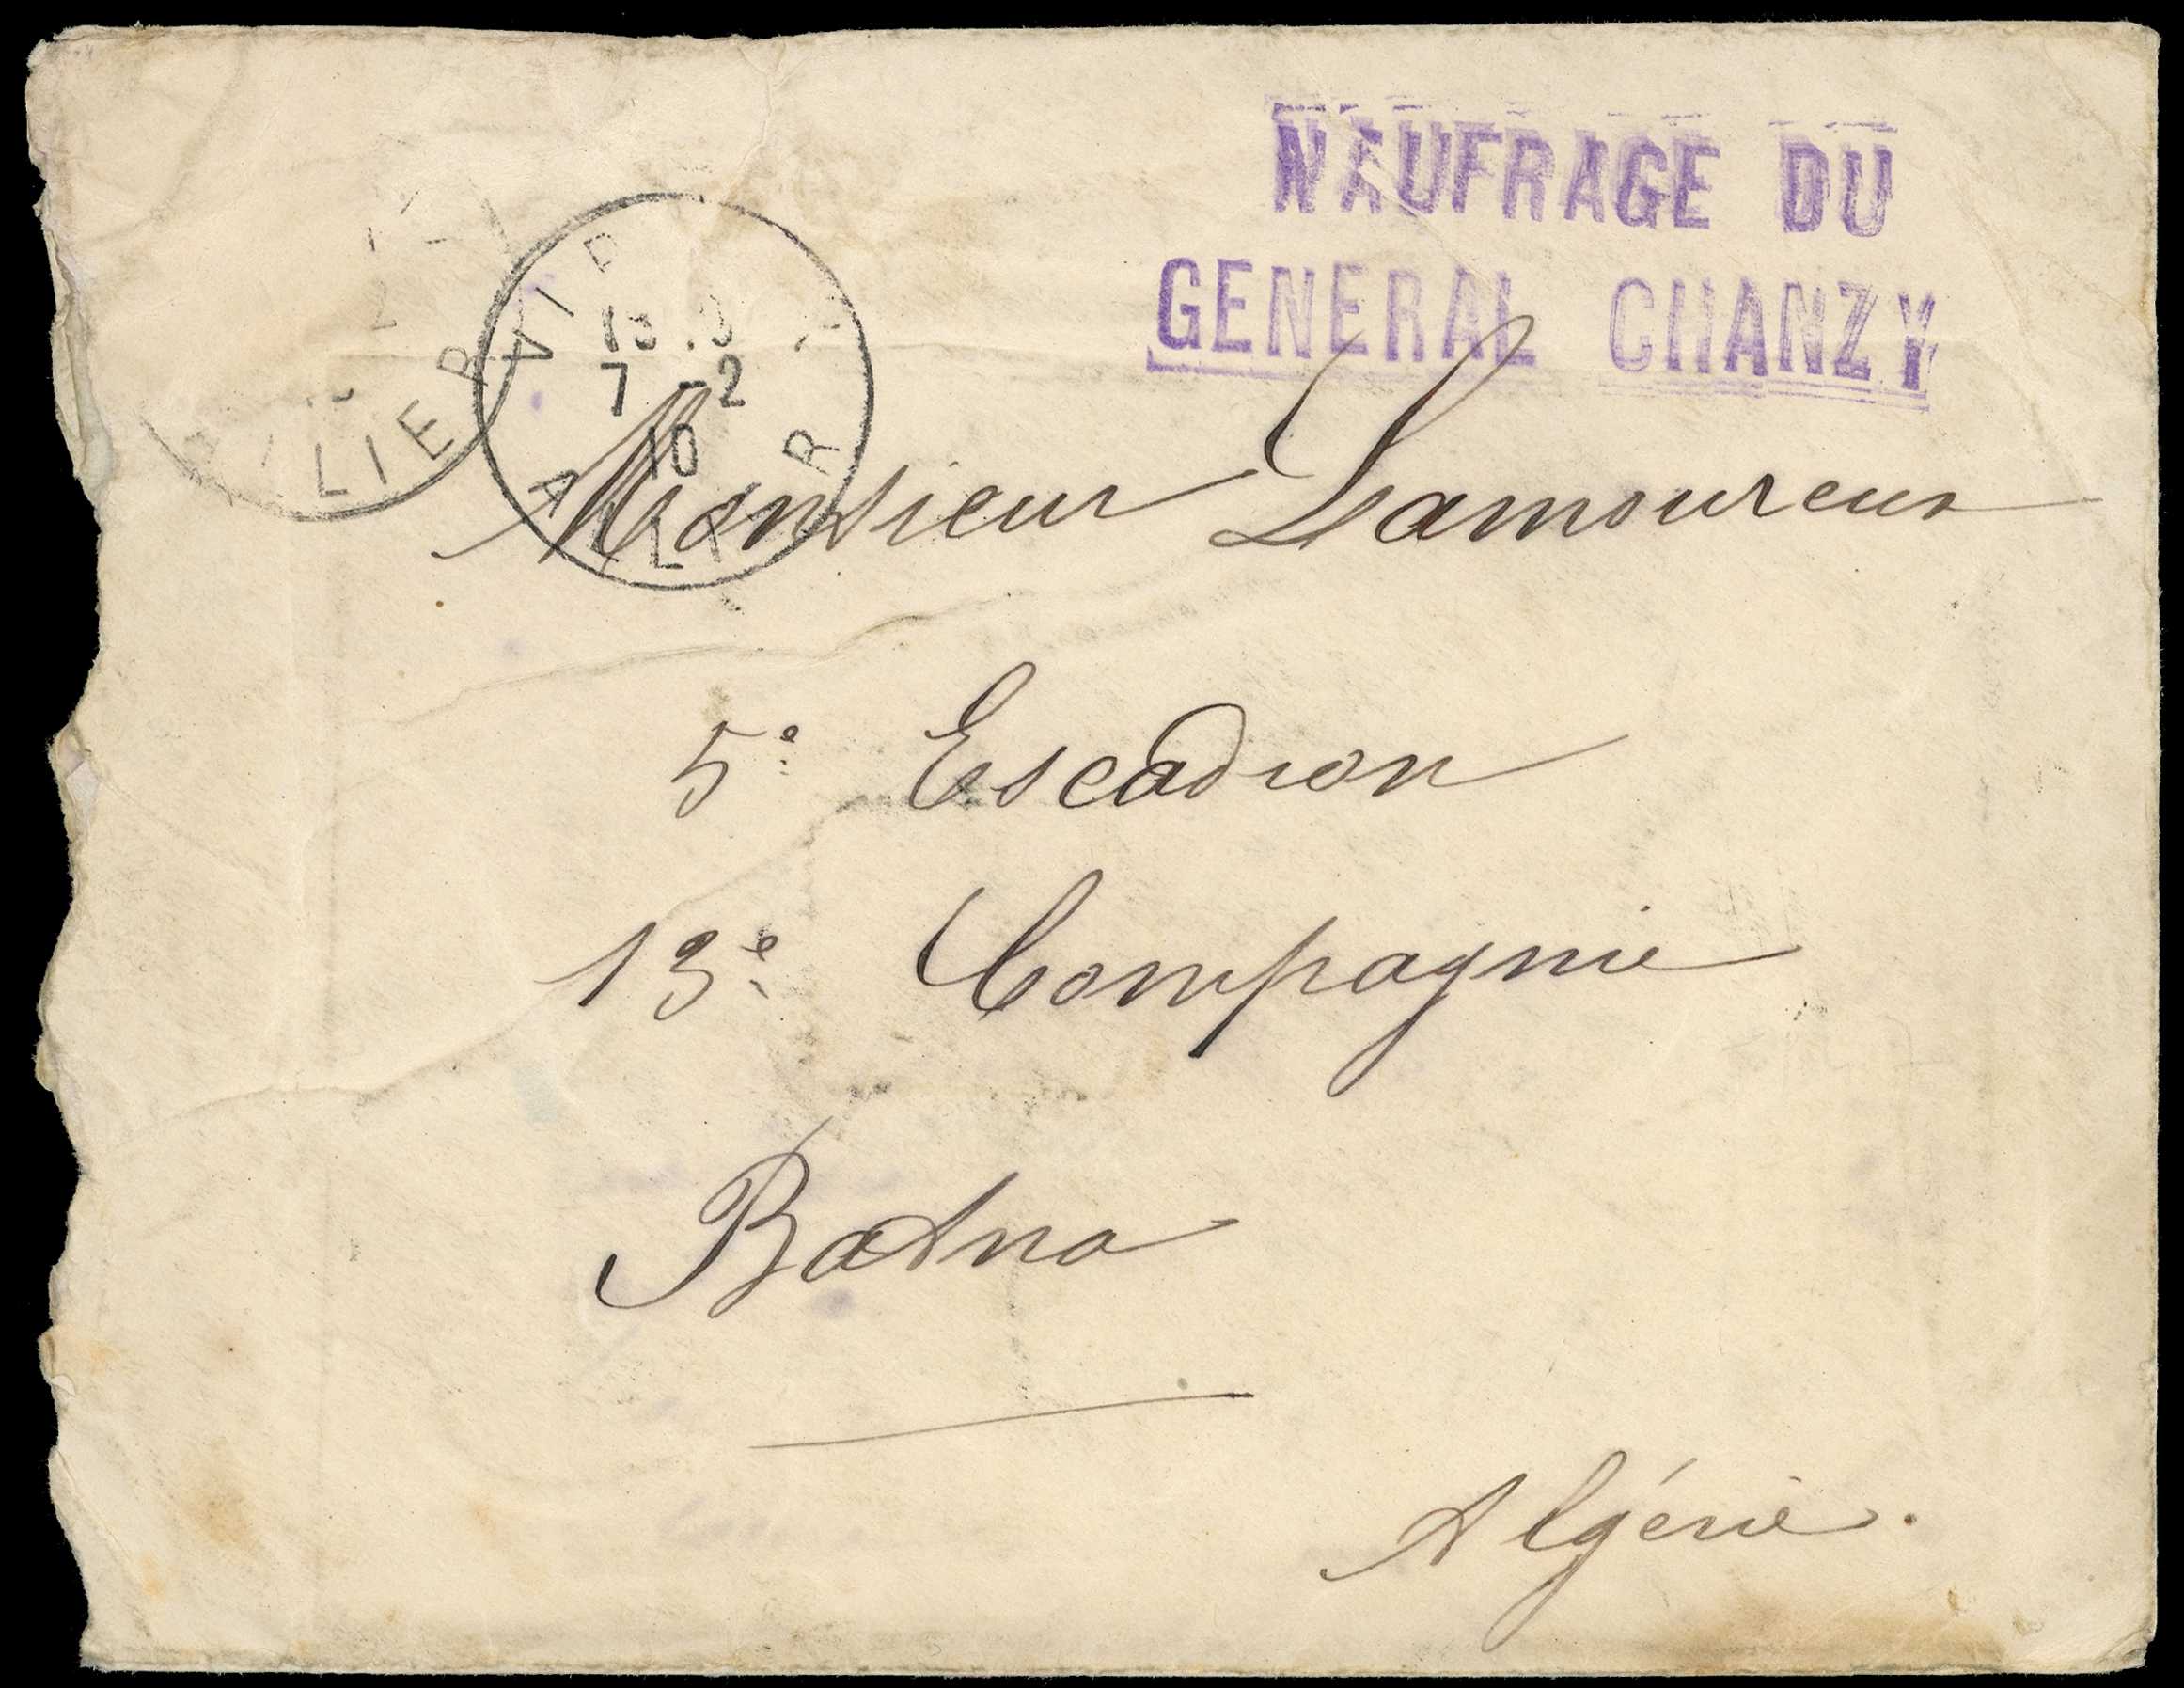 NAUFRAGE DU
GENERAL CHANZY
7 -2
10
ALLIER
LIER
Monsieur Lamoureux
5e Escadron
13e Compagnie
Batna
Algérie.